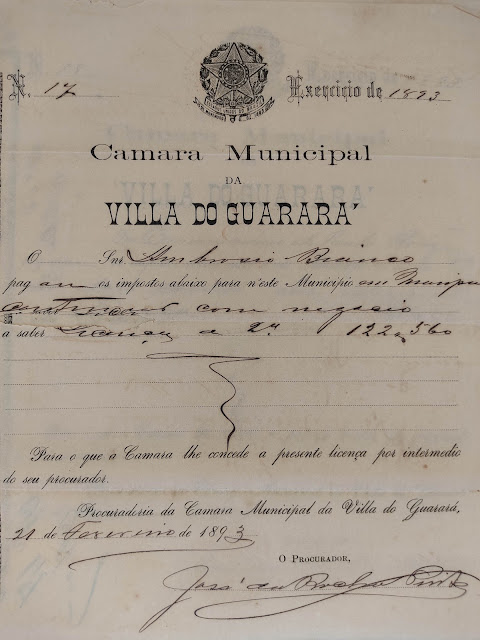 N. 17 Exercicio de 1893
Camara Municipal
DA
VILLA DO GUARARÁ
O Snr. Ambrosio Bianco
pagou os impostos abaixo para n'este Municipio
continuar com negocio
a saber 122$560
Para o que a Camara lhe concede a presente licença por intermedio
do seu procurador.
Procuradoria da Camara Municipal da Villa do Guarará,
21 de Fevereiro de 1893
O PROCURADOR,
José da Rocha